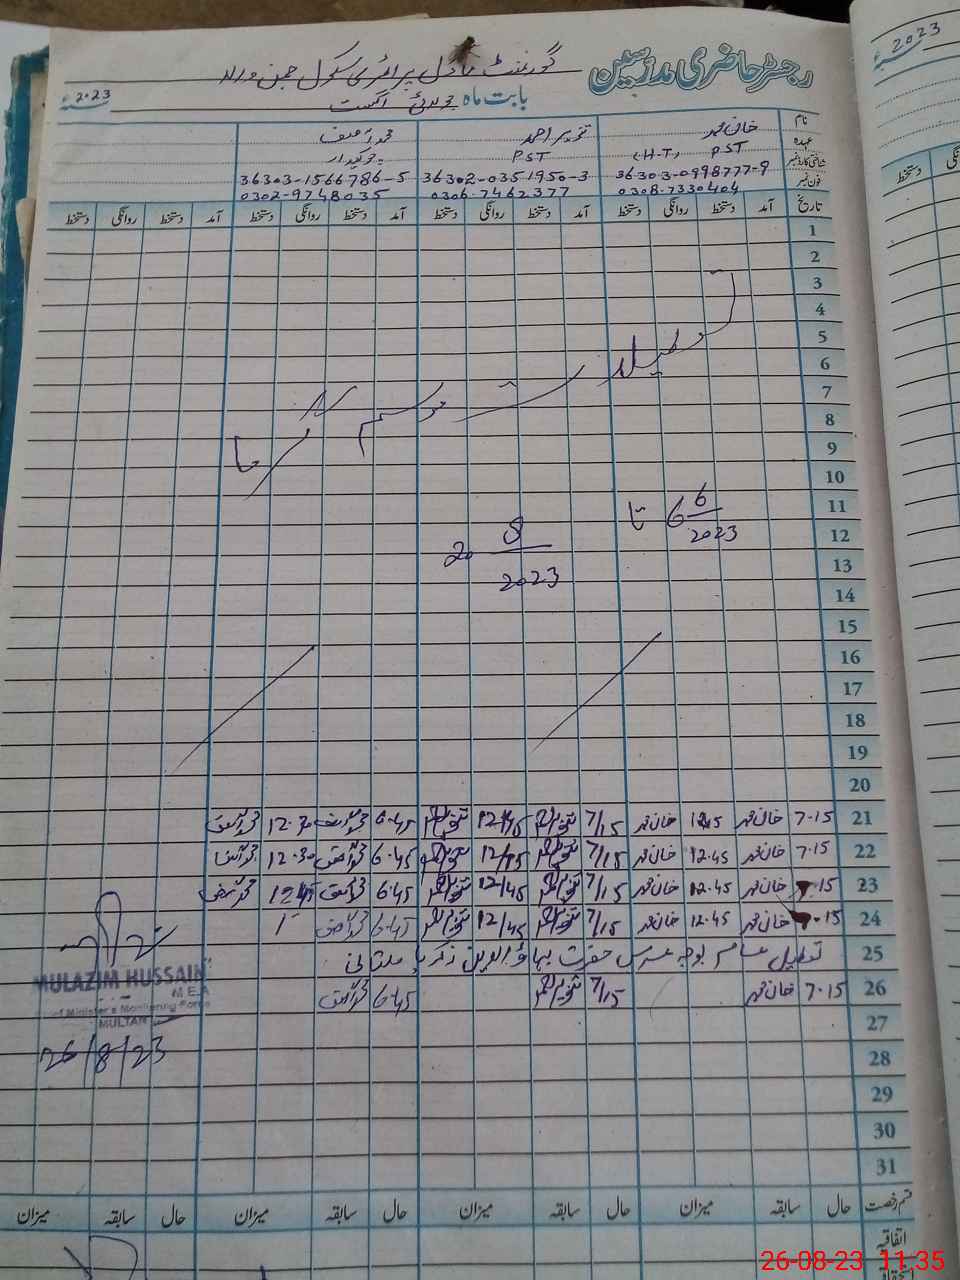 رجسٹر حاضری مدرسین
گورنمنٹ ماڈل پرائمری سکول
2023ء
بابت ماہ جولائی اگست
2023ء
نام خان محمد تنویر احمد محمد آصف
عہدہ PST (H.T) PST چوکیدار
شناختی کارڈ نمبر 36303-0998777-9 36302-0351950-3 36303-1566786-5
فون نمبر 0308-7330404 0306-7462377 0302-9748035
تاریخ آمد دستخط روانگی دستخط آمد دستخط روانگی دستخط آمد دستخط روانگی دستخط آمد دستخط روانگی دستخط
دستخط
روانگی
1
2
3
4
5
6
7
8
9
10
11
12
13
14
15
16
17
18
19
20
تعطیلات موسم گرما
6 6/2023 تا
20 8/2023
21 7.15 خان محمد 12.45 خان محمد 7/15 تنویر احمد 12/45 تنویر احمد 6.45 محمد آصف 12.30 محمد آصف
22 7.15 خان محمد 12.45 خان محمد 7/15 تنویر احمد 12/45 تنویر احمد 6.45 محمد آصف 12.30 محمد آصف
23 7.15 خان محمد 12.45 خان محمد 7/15 تنویر احمد 12/45 تنویر احمد 6.45 محمد آصف 12.45 محمد آصف
24 7.15 خان محمد 12.45 خان محمد 7/15 تنویر احمد 12/45 تنویر احمد 6.45 محمد آصف 1
25 تعطیل عام بوجہ عرس حضرت بہاؤالدین زکریا ملتانی
26 7.15 خان محمد 7/15 تنویر احمد 6.45 محمد آصف
27
28
29
30
31
MULAZIM HUSSAIN
M.E.A
Chief Minister's Monitoring Force
MULTAN
26/8/23
قسم رخصت حال سابقہ میزان حال سابقہ میزان حال سابقہ میزان حال سابقہ میزان
اتفاقیہ
26-08-23 11:35